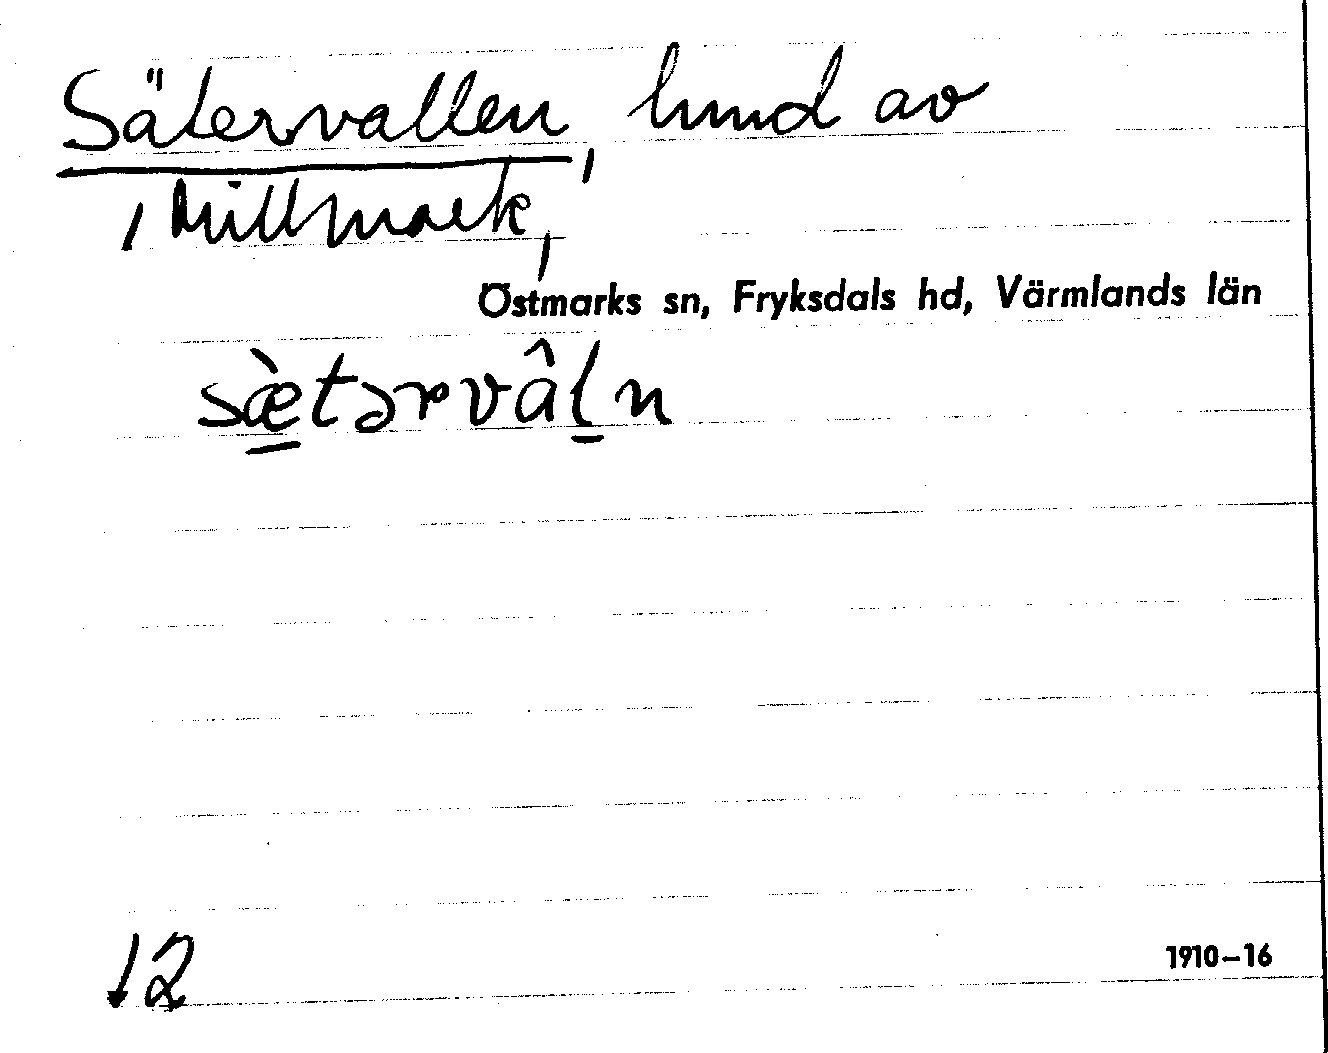 Sätervallen, lund av
i Millmark,
Östmarks sn, Fryksdals hd, Värmlands län
sæ̀tərvâln
12
1910–16